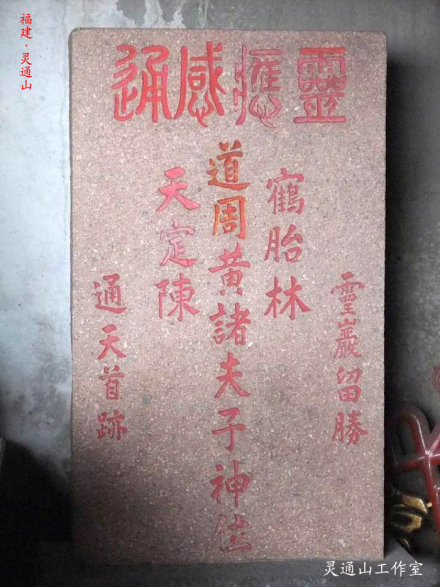 福建·灵通山
靈應感通
靈巖留勝
鶴胎林
道周黃諸夫子神位
天定陳
通天首跡
灵通山工作室